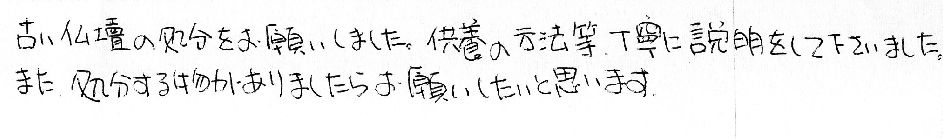 古い仏壇の処分をお願いしました。供養の方法等、丁寧に説明をして下さいました。
また、処分する物がありましたらお願いしたいと思います。